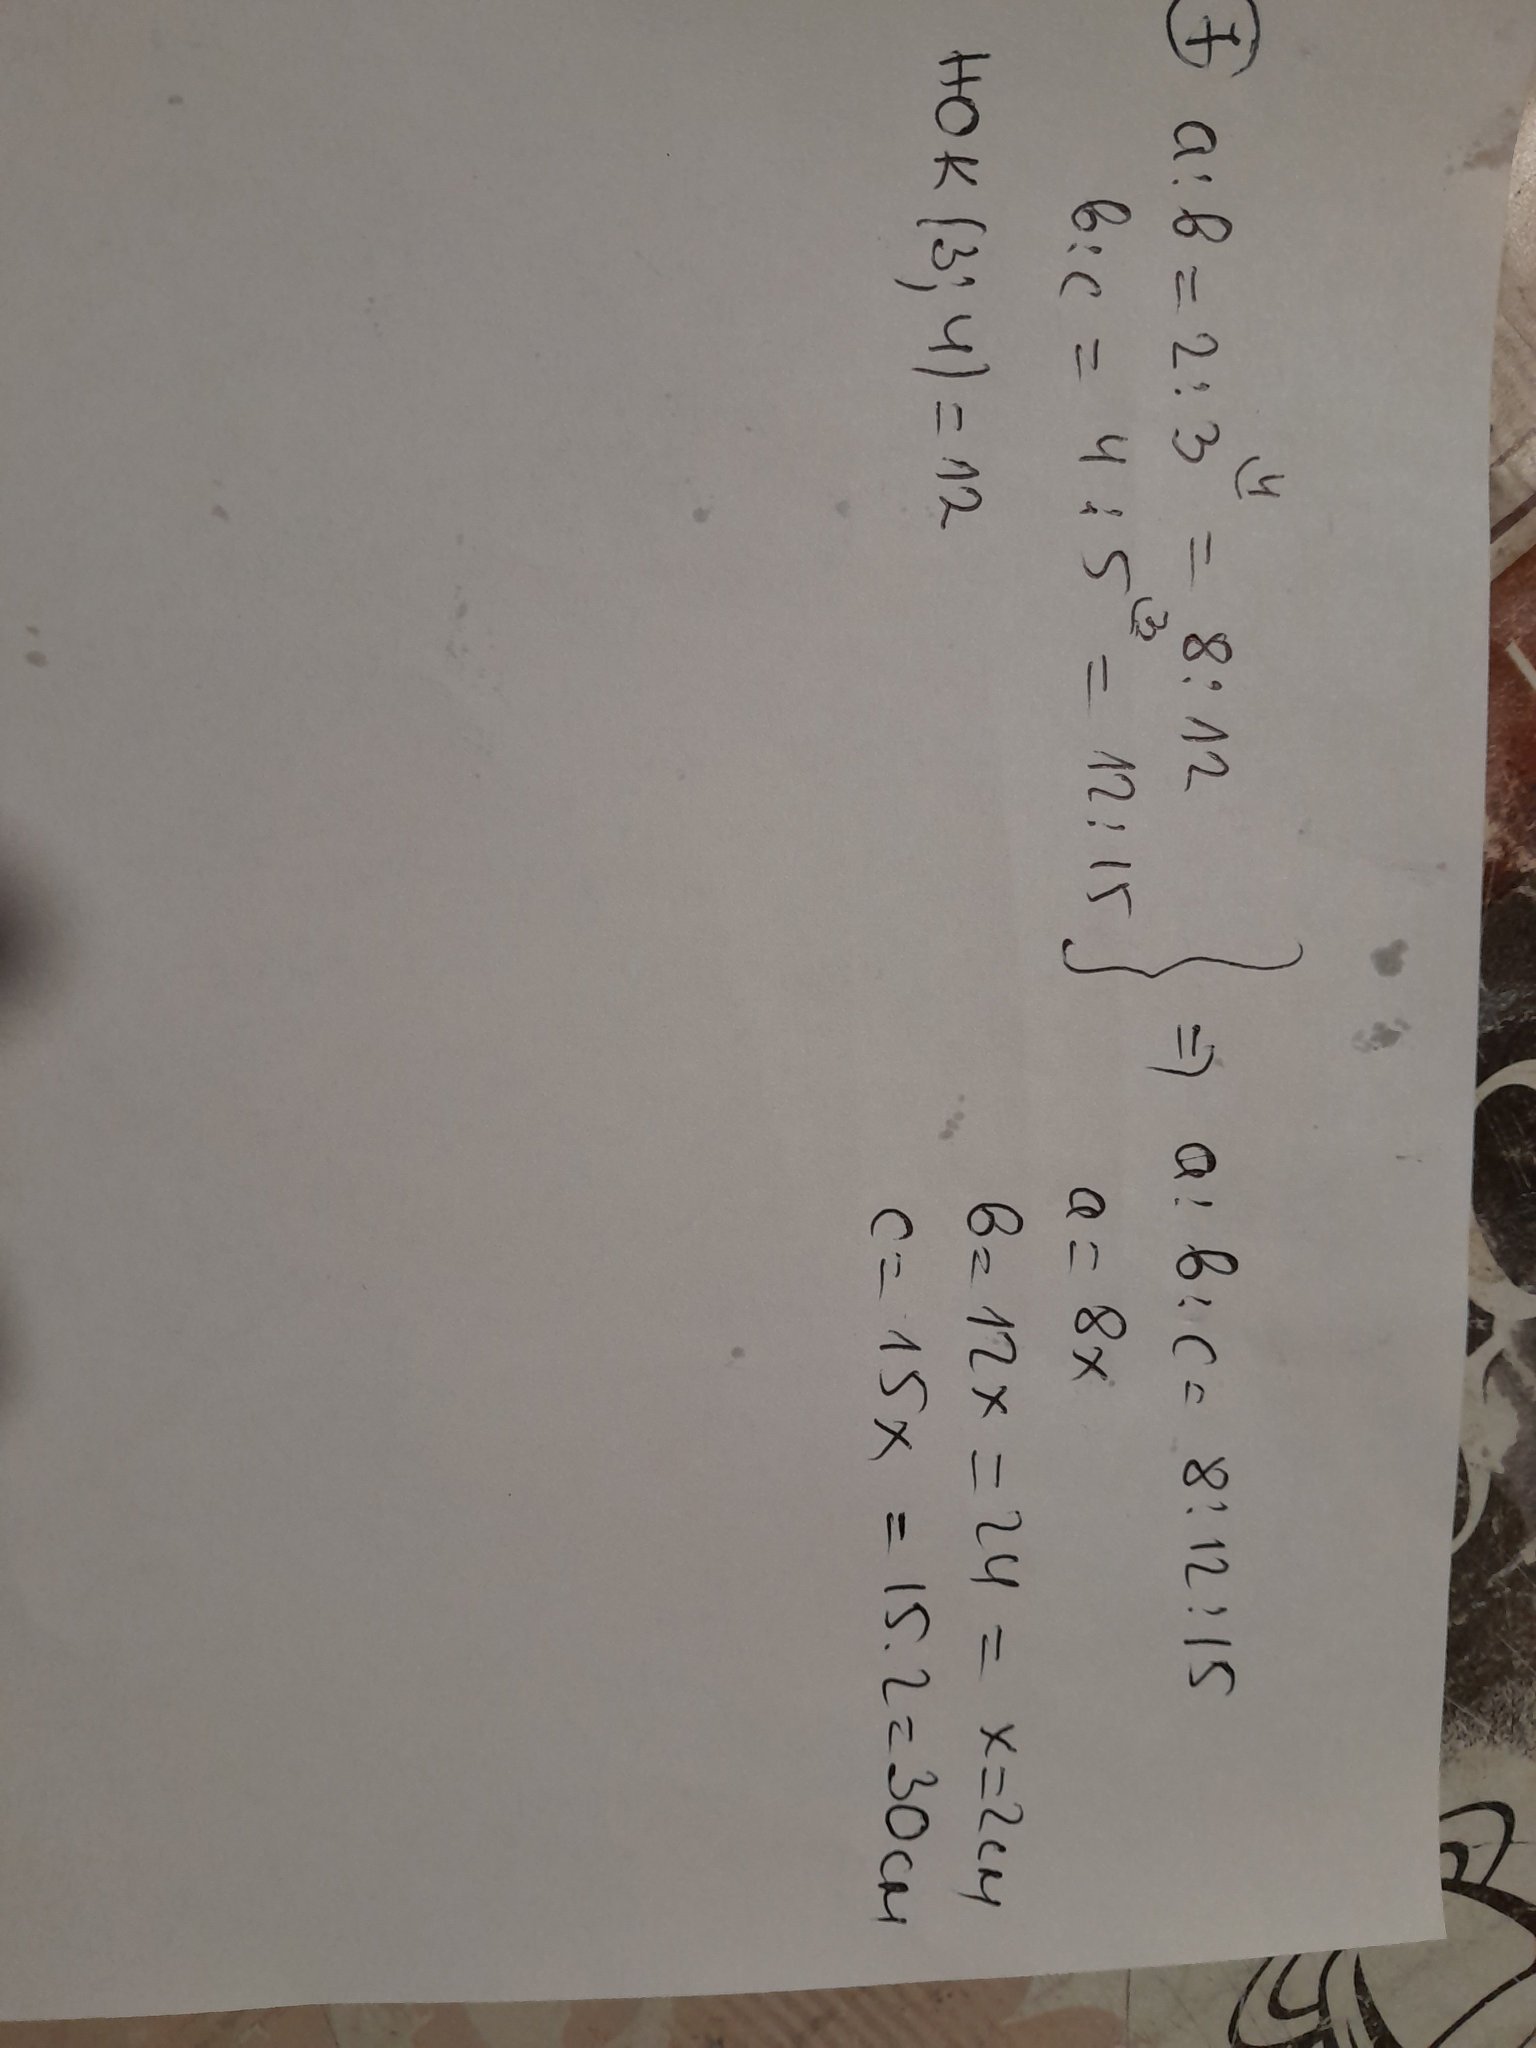 7 a:b=2:3 (4 = 8:12 } ⇒ a:b:c= 8:12:15
b:c = 4:5 (3 = 12:15
a=8x
НОК(3;4)=12
b=12x=24= x=2см
c=15x = 15.2=30см